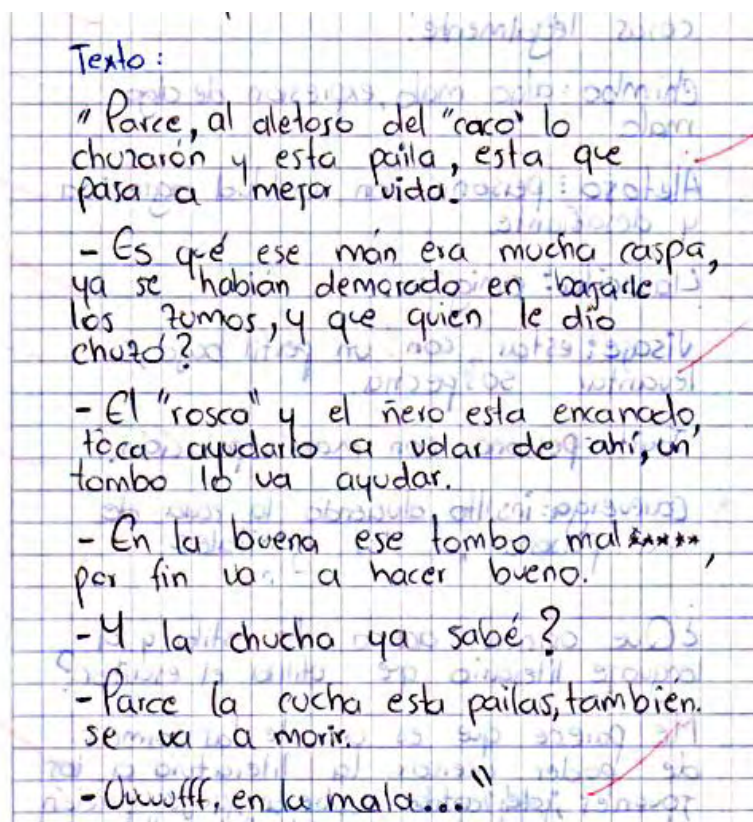 Texto:
"Parce, al aletoso del "caco" lo
chuzarón y esta paila, esta que
pasa a mejor vida.
- Es qué ese mán era mucha caspa,
ya se habian demorado en bajarle
los zumos, y que quien le dio
chuzo?
- El "rosco" y el ñero esta encanado,
toca ayudarlo a volar de ahí, un
tombo lo va ayudar.
- En la buena ese tombo mal*****,
por fin va a hacer bueno.
- Y la chucha ya sabé?
- Parce la cucha esta pailas, tambien.
se va a morir.
- Ouuuufff, en la mala..."